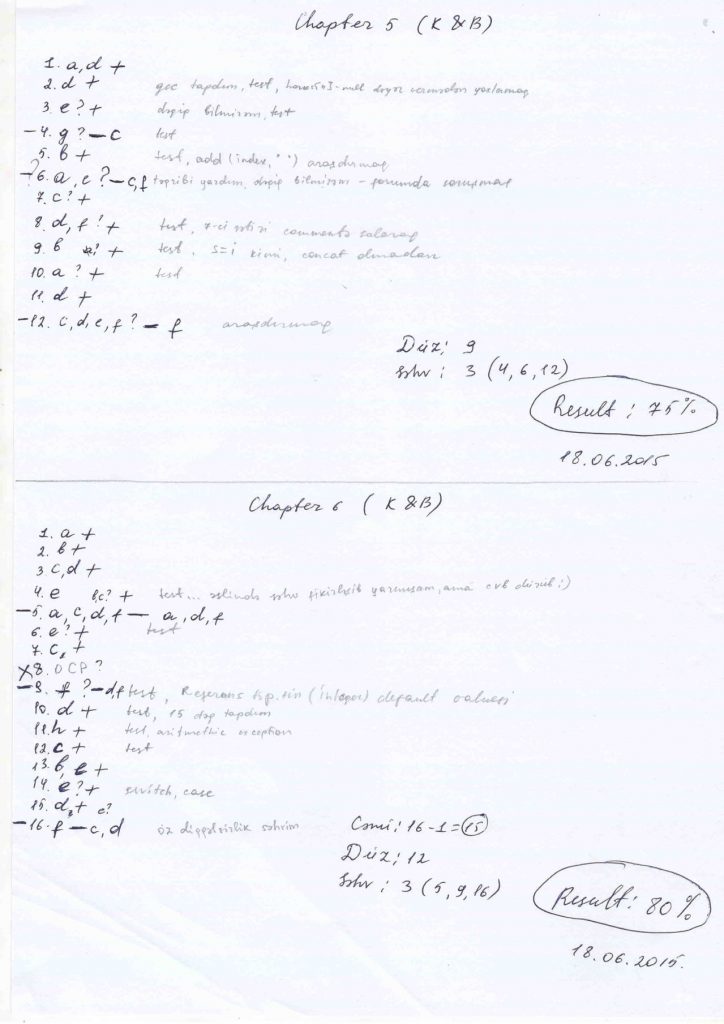 Chapter 5 (K & B)
1. a, d +
2. d + gec tapdım, test,
3. e? + dəqiq bilmirəm, test
- 4. g ? - c test
5. b + test, add (index, " ") araşdırmaq
-? 6. a, e ? - c, f təqribi yazdım, dəqiq bilmirəm - forumda soruşmaq
7. c? +
8. d, f ? + test, 7-ci sətri commentə salaraq
9. b + test, s=i kimi, concat olmadan
10. a ? + test
11. d +
- 12. c, d, e, f ? - f araşdırmaq
Düz: 9
səhv : 3 (4, 6, 12)
Result : 75%
18.06.2015
Chapter 6 (K & B)
1. a +
2. b +
3. c, d +
4. e b, c? + test... əslində səhv fikirləşib yazmışam, ama cvb düzüb :)
- 5. a, c, d, f - a, d, f
6. e? + test
7. c, +
X 8. OCP ?
- 9. f ? - d, f test, Referans tip.tin (Integer) default valuesi
10. d + test, 15 dəq tapdım
11. h + test, aritmethic exception
12. c + test
13. b, e +
14. e? + switch, case
15. d, + c?
- 16. f - c, d öz diqqətsizlik səhvim
Cəmi: 16-1=15
Düz: 12
səhv : 3 (5, 9, 16)
Result: 80%
18.06.2015.